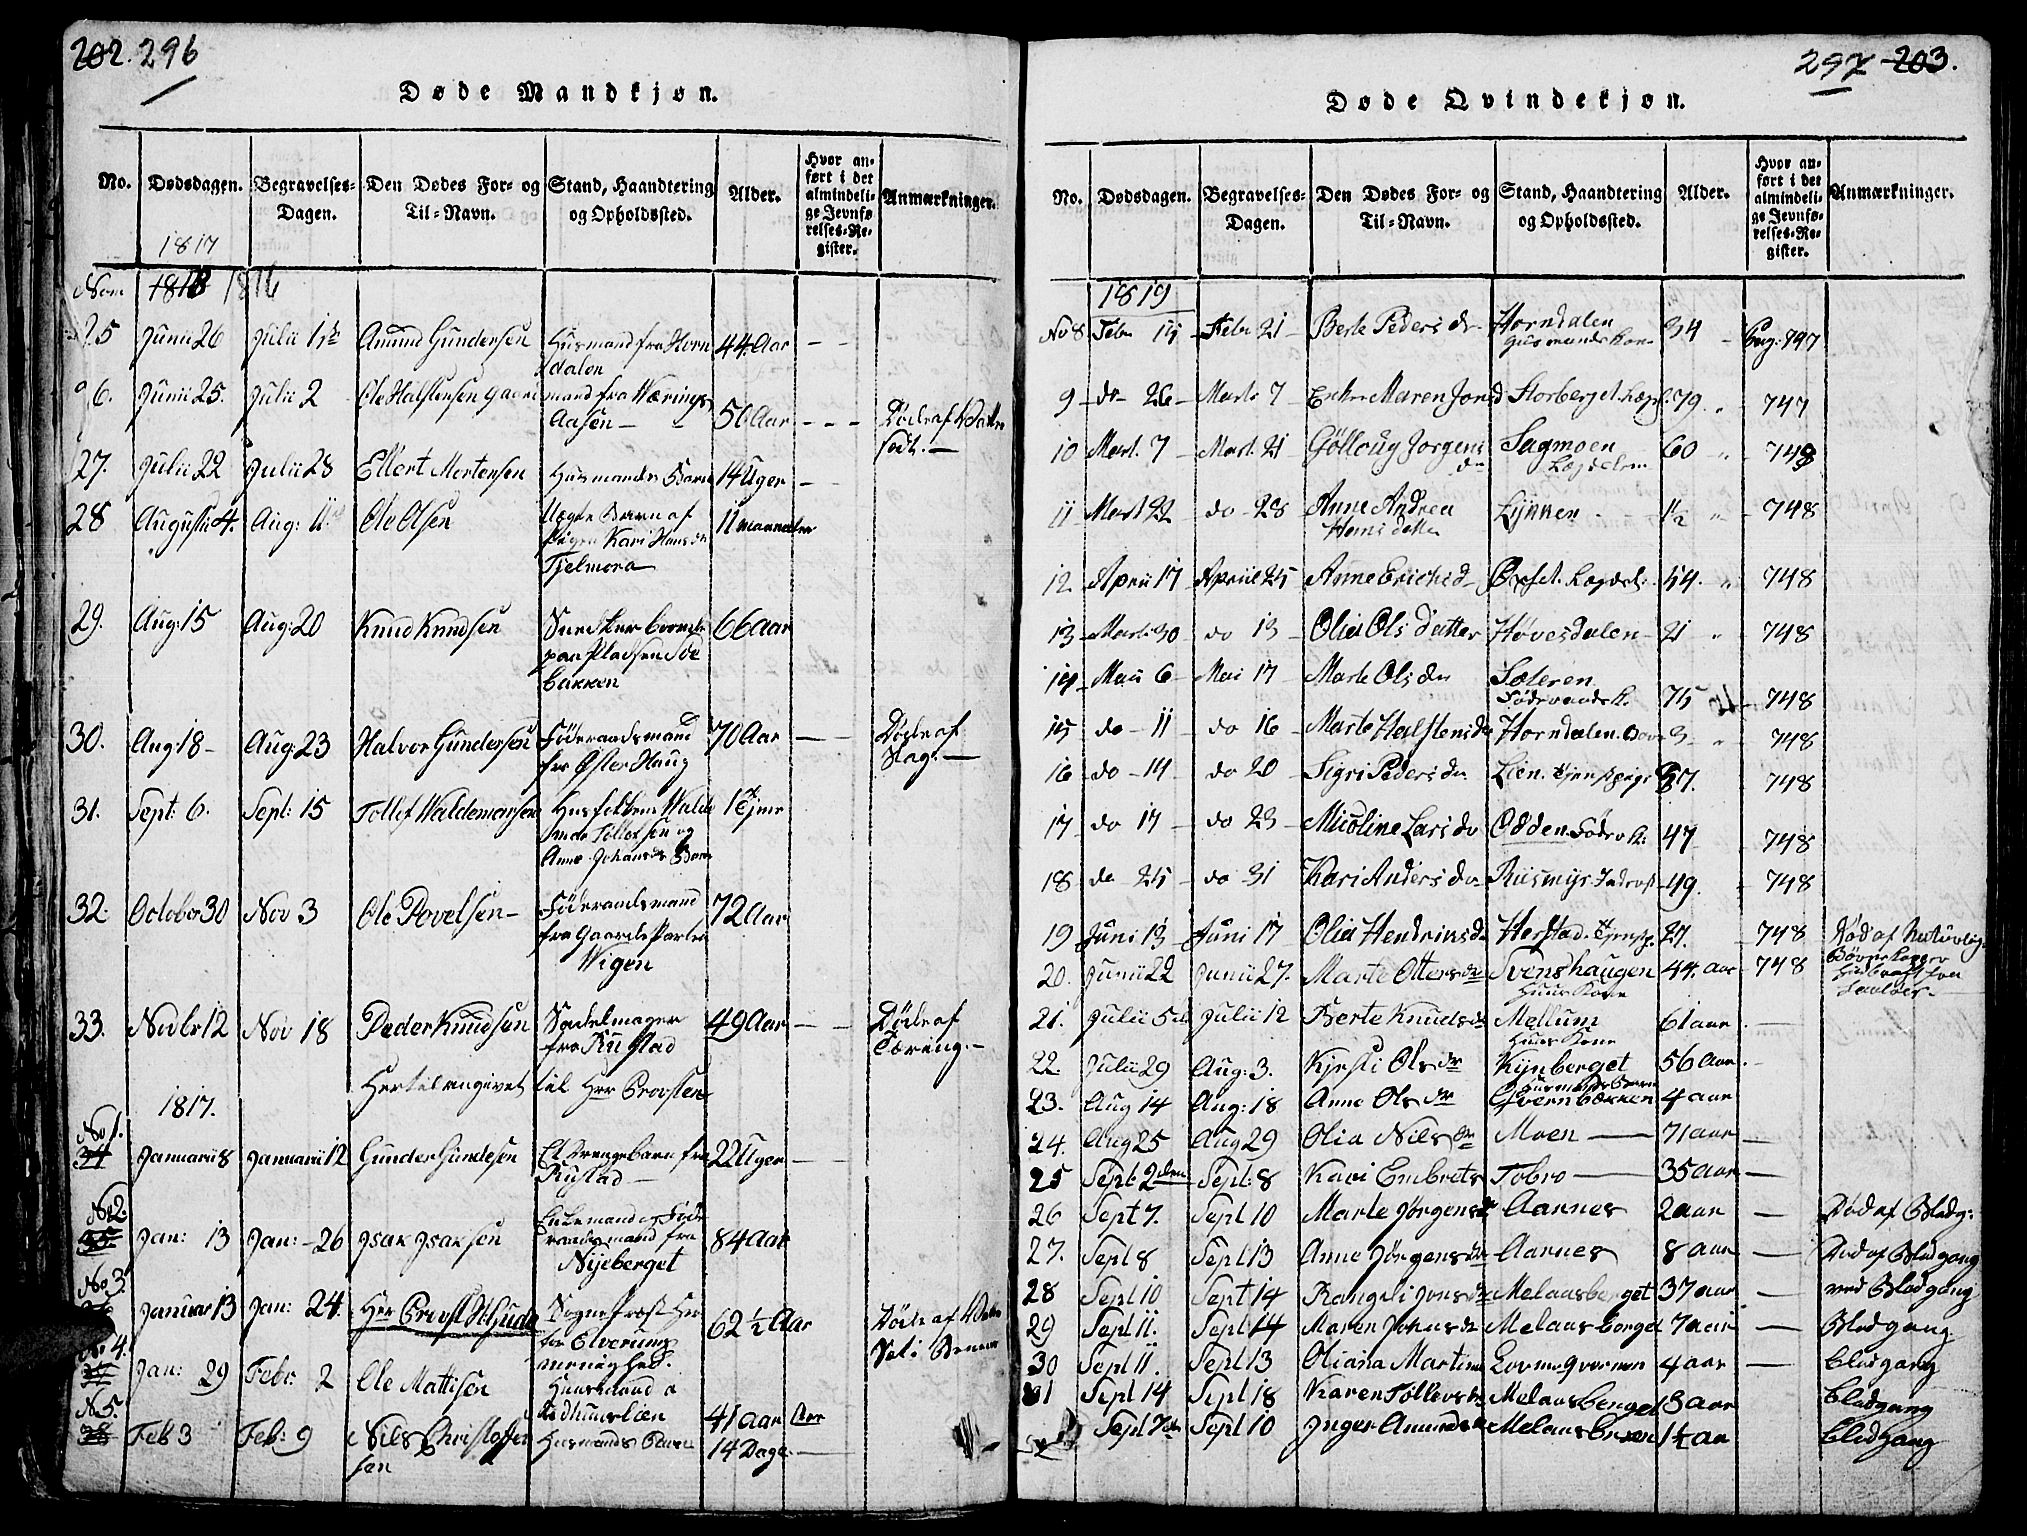 202. 296
Døde Mandkjøn.
No. Dødsdagen. Begravelses-Dagen. Den Dødes For- og Til-Navn. Stand, Haandtering og Opholdssted. Alder. Hvor anført i det almindelige Jevnførelses-Register. Anmærkninger.
1817
1818 1816
25 Junii 26 Julii 1ste Amund Gundersen Husmand fra Horn 44 Aar - -
dalen
26. Junii 25. Julii 2 Ole Halstensen Gaard mand fra Wærings
Aasen - 50 Aar - - - Døde af Vatter
sodt. -
27. Julii 22 Julii 28 Ellert Mortensen Husmands Barn 14 Uger -
28 Augustii 4. Aug: 11 Ole Olsen Uægte Barn af 11 maaneder
Pigen Kari Hans dr
Tjelmora
29. Aug: 15 Aug: 20 Knud Knudsen 66 aar
paa Pladsen
bakken
30. Aug 18 - Aug: 23 Halvor Gundersen Føderaadsmand 70 Aar - - Døde af
fra Øster Haug Slag. -
31. Sept: 6. Sept: 15 Tollef Waldemarsen Husfolkene Walde
mar Tollefsen og
Anne Johansdr Barn
32. October 30 Nov 3 Ole Povelsen - Føderaadsmand 72 Aar
fra Gaarden
Wigen
33. Novbr 12 Nov 18 Peder Knudsen Sadelmager 49 Aar - - Døde af
fra Rustad Tæring. -
Hertil angivet til Herr Provsten
1817.
No 1.
34 Januarii 8 Januarii 12 Gunder Gundesen Et Drengebarn fra 22 Uger - -
Rustad -
No 2.
35. Jan: 13 Jan: - 26 Isak Isaksen Enkemand og Føde 84 Aar
raadsmand fra
Nijeberget
No 3
36 Januar 13 Jan: 24. Herr Provst Sogne Præst Her 62 1/2 Aar Døde af
for Elverums
menighed.
No 4.
Jan: 29 Febr. 2 Ole Mattisen Huusmand 41 aar
No 5.
38 Feb 3 Feb: 9 Nils Christoffer Husmands Barn 14 Dage. -
sen
297 203.
Døde Qvindekjøn.
No. Dødsdagen. Begravelses-Dagen. Den Dødes For- og Til-Navn. Stand, Haandtering og Opholdssted. Alder. Hvor anført i det almindelige Jevnførelses-Register. Anmærkninger.
1819
No 8 Febr 15 Febr 21 - Berte Peders dr - Horndalen 34 Pag: 747
Huusmands Kone
9 - do - 26 - Marts 7 Enken Maren Jons d Storberget Lægdl. 79. 747
10 Mart. 7 - Mart. 21 Gølloug Jørgens dr Sagmoen 60 - 748
Lægdslem
11 Mart 22 do - 28 Anne Andrea Lynnen - 1/2 - 748
Hans datter
12. April 17 April 25 Anne Erichs d - Lægdsl. 54. 748
13 - Marts 30 do 13 - Olia Ols datter Høvesdalen - 21 748
14 - Maii 6 - Mai 17 - Marte Ols dr Sæteren
Føderaads K. 75 748
15 do - 11 do 16 - Marte Halstens dr Horndalen. Barn 3 - 748
16 do - 14 do 20 - Sigri Peders dr Lien. Tjenestpige 37. 748
17 - do 17 - do 23 - Micoline Lars dr Odden Føder. K: 47 748
18 - do 25 - do 31 Kari Anders dr - Riismyr 49. 748
19 Juni 13 - Juni 17 Olia Hendrics dr Herstad. Tjenstp. 27. - 748 Død af Naturlig
20. Junii 22 Junii 27. Marte Otters dr Svenshaugen 44. aar - 748
Huus Kone
21. Julii 5te Julii 12 Berte Knuds dr Mellum 61 aar . -
Huus Kone
22. Julii 29 Aug: 3. Kjersti Ols dr Kijnberget 56 aar . -
Huusmands Barn
23. Aug 14 Aug: 18 Anne Ols dr Qvernbækken 4 aar
24. Aug 25 Aug 29 Olia Nils dr Moen - 71 aar -
25 Sept: 2den Sept: 8 Kari Embrets Tobro - 35 aar -
26 Sept 7. Sept 10 Marte Jørgens dr Aarnes 2 aar - Død af Blodg:
27. Sept 8 Sept 13 Anne Jørgens dr Aarnes 8 aar - Død af Blodgang
28 Sept 10 Sept 14 Rangeli Jons dr Melaasberget 37 aar - ved Blodgang
29 Sept 11. Sept 14 Maren Johns dr Melaasberget 7 aar - Blodgang
30 Sept 11. Sept 13 Oliana Martins 4 aar - blodgang
31 Sept 14 Sept 18 Karen Tollevs dr Melaasberget 13 aar blodgang
Sept 7de Sept 10 Inger Amunds dr Melaasberget 1 1/2 aar blodgang